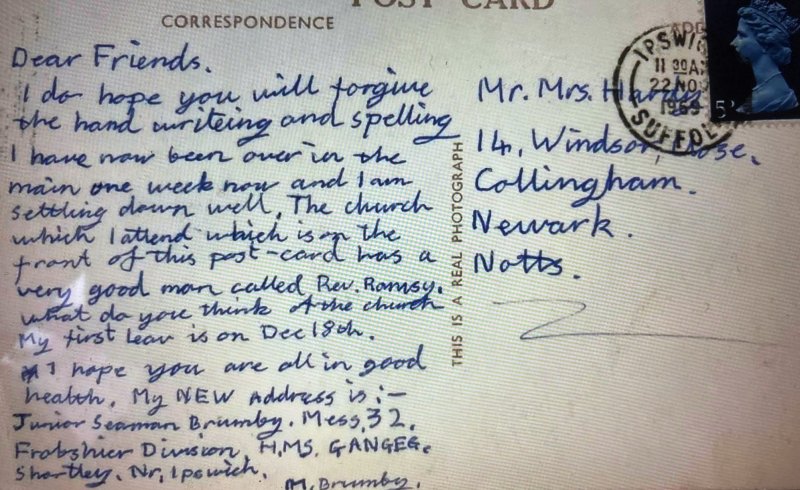 POST CARD
CORRESPONDENCE
Dear Friends.
I do hope you will forgive
the hand writeing and spelling
I have now been over in the
main one week now and I am
settling down well. The church
which I attend which is on the
front of this post-card has a
very good man called Rev. Ramsy.
what do you think of the church
My first leav is on Dec 18th.
I hope you are all in good
health. My NEW Address is :-
Junior Seaman Brumby. Mess, 32.
Frobshier Division, H.M.S. GANGEG.
Shortley. Nr, Ipswich.
M. Brumby.
THIS IS A REAL PHOTOGRAPH
IPSWICH
11 30A
22 NO
1969
SUFFOL
5
Mr. Mrs.
14, Windsor,
Collingham.
Newark.
Notts.